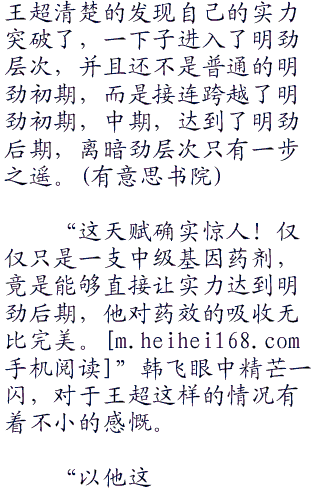 王超清楚的发现自己的实力
突破了，一下子进入了明劲
层次，并且还不是普通的明
劲初期，而是接连跨越了明
劲初期，中期，达到了明劲
后期，离暗劲层次只有一步
之遥。(有意思书院)
“这天赋确实惊人！仅
仅只是一支中级基因药剂，
竟是能够直接让实力达到明
劲后期，他对药效的吸收无
比完美。[m.heihei168.com
手机阅读]”韩飞眼中精芒一
闪，对于王超这样的情况有
着不小的感慨。
“以他这